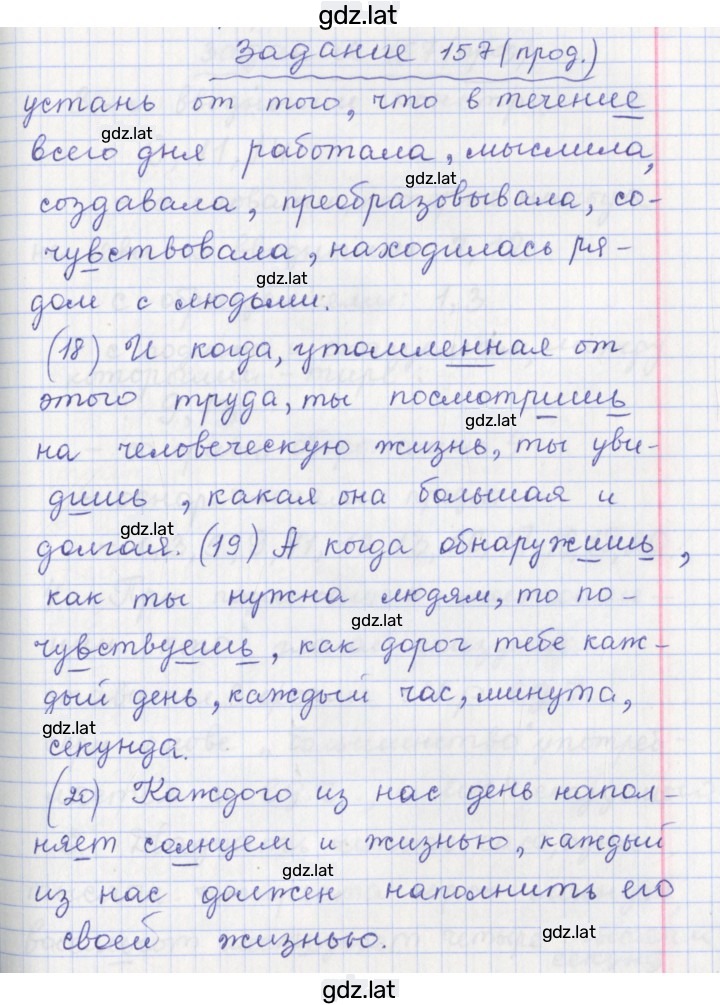 gdz.lat
Задание 157 (прод.)
устань от того, что в течение
gdz.lat
всего дня работала, мыслила,
gdz.lat
создавала, преобразовывала, со-
чувствовала, находилась ря-
gdz.lat
дом с людьми.
(18) И когда, утомленная от
этого труда, ты посмотришь
gdz.lat
на человеческую жизнь, ты уви-
дишь, какая она большая и
gdz.lat
долгая. (19) А когда обнаружишь,
как ты нужна людям, то по-
gdz.lat
чувствуешь, как дорог тебе каж-
дый день, каждый час, минута,
gdz.lat
секунда.
(20) Каждого из нас день напол-
няет солнцем и жизнью, каждый
gdz.lat
из нас должен наполнить его
своей жизнью.
gdz.lat
gdz.lat